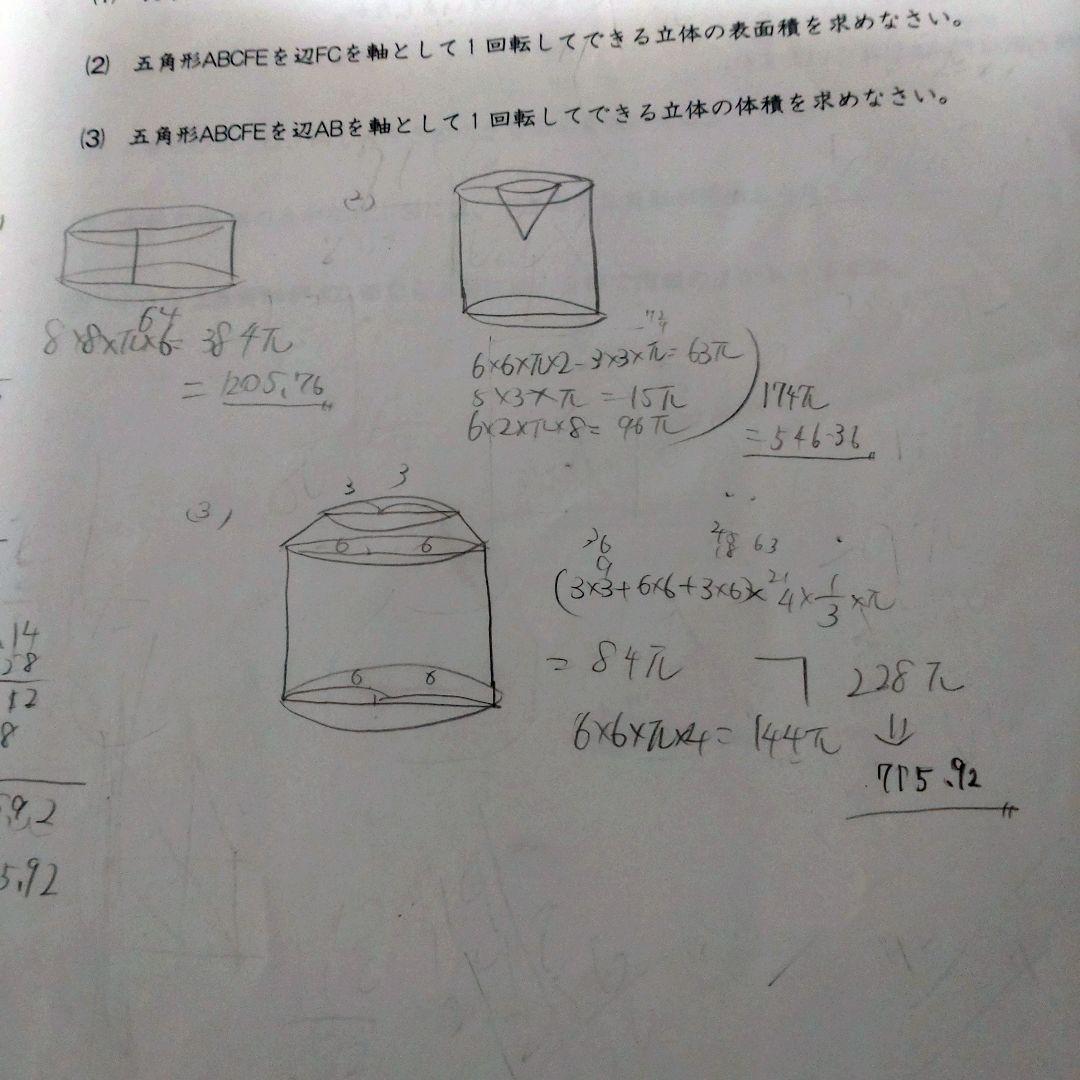 (2) 五角形ABCFEを辺FCを軸として1回転してできる立体の表面積を求めなさい。
(3) 五角形ABCFEを辺ABを軸として1回転してできる立体の体積を求めなさい。
(2)
64
8×8×π×6= 384π
= 1205.76
6×6×π×2-3×3×π= 63π
5×3×π = 15π
6×2×π×8= 96π
174π
= 546.36
(3)
3 3
6 6
6 6
9
18 63
21
(3×3+6×6+3×6)×4×1/3×π
= 84π
6×6×π×4= 144π
228π
⇓
715.92
.14
28
12
8
5.92